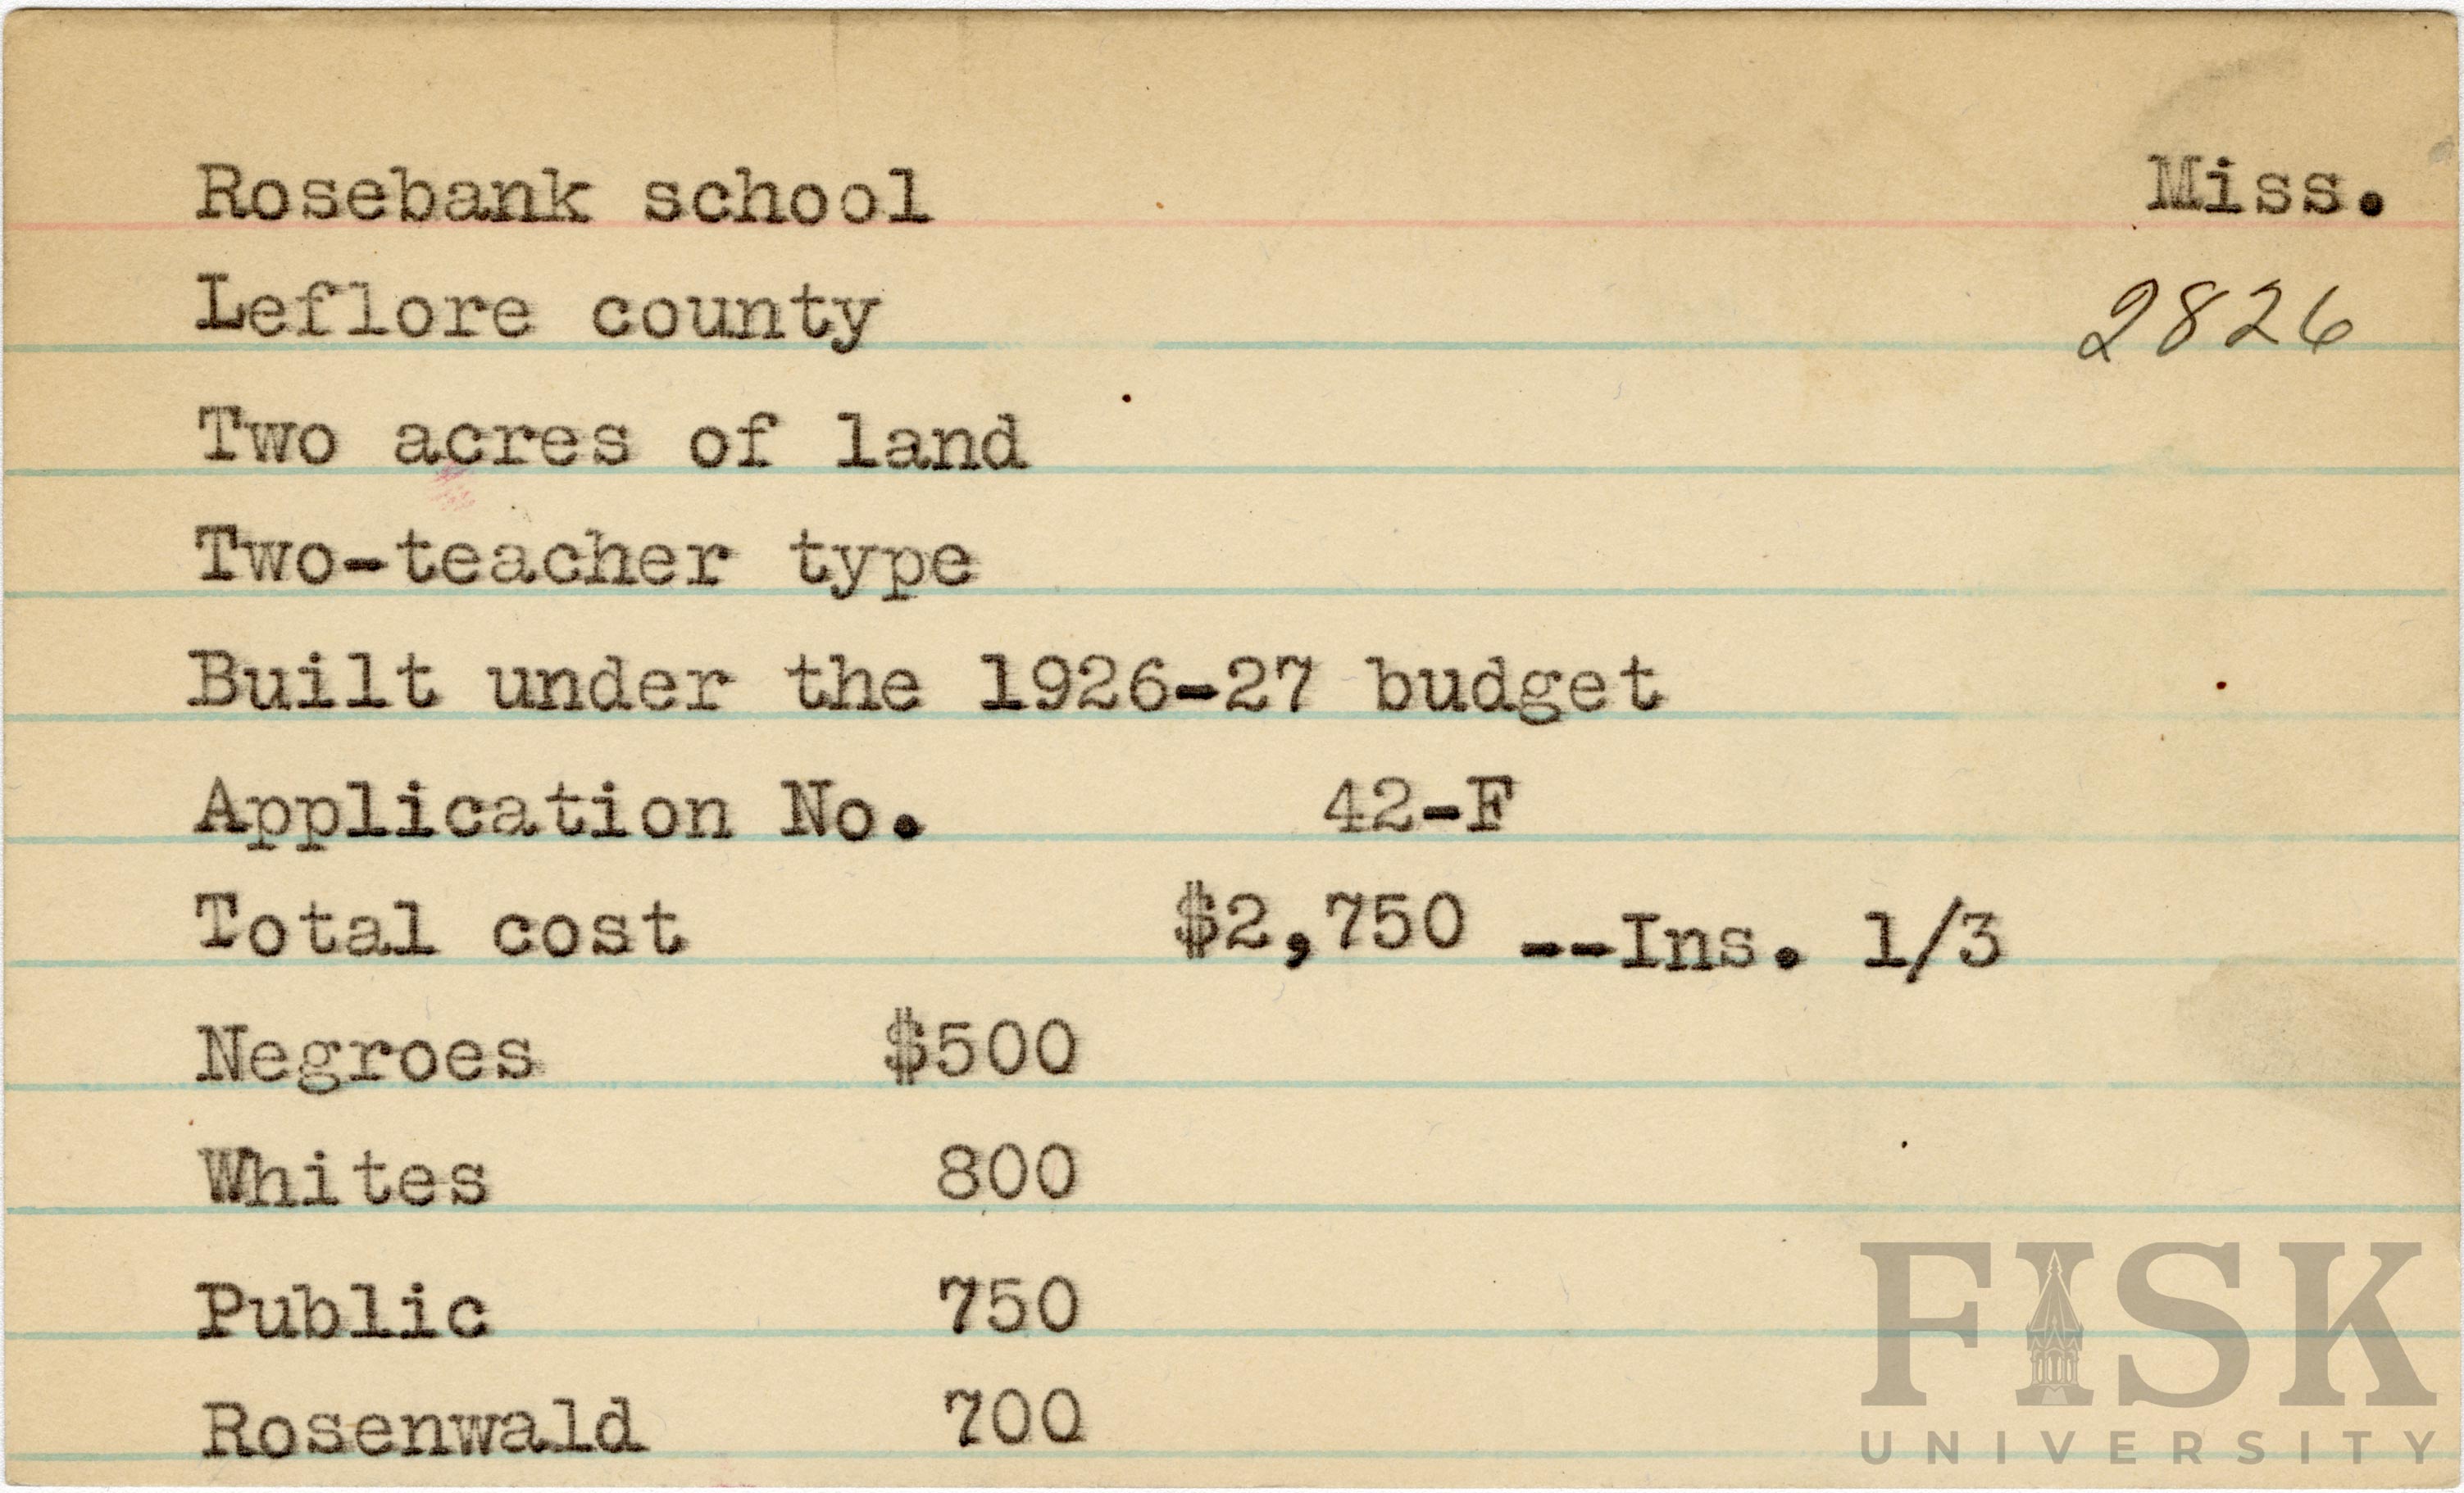 Rosebank school Miss.
Leflore county 2826
Two acres of land
Two-teacher type
Built under the 1926-27 budget
Application No. 42-F
Total cost $2,750 --Ins. 1/3
Negroes $500
Whites 800
Public 750
Rosenwald 700
FISK
UNIVERSITY